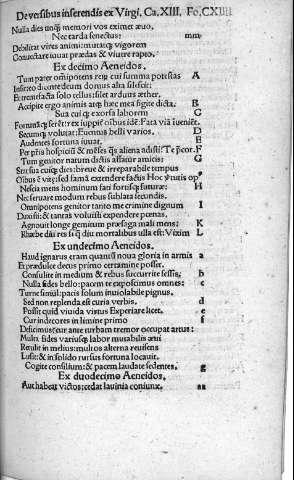 De versibus inserendis ex Virgi. Ca. XIII. Fo. CXIIII
Nulla dies unq̃ memori vos eximet ævo,
Nec tarda senectus: mm
Debilitat vires animi: mutatq; vigorem
Convectare iuvat prædas & vivere rapto.
Ex decimo Aeneidos.
Tum pater omnipotens reru͂ cui summa potestas A
Infit: eo dicente deum domus alta silescit:
Et tremefacta solo tellus: silet arduus æther.
Accipite ergo animis atq; hæc mea figite dicta. B
Sua cuiq; exorsa laborem G
Fortunãq; ferẽt: rex iuppiter oĩbus idẽ: Fata viã ĩvenĩet.
Secumq; volutat: Eventus belli varios. D
Audentes fortuna iuvat. E
Per p̃ris hospiciũ & mẽsas q̃s aliena adisti: Te p̃cor. F
Tum genitor natum dictis affatur amicis: G
Stat sua cuiq; dies: breve & irreparabile tempus
Oĩbus ẽ vitę: sed famã extendere factis Hoc v̾tutis op̾
Nescia mens hominum fati sortisq; futuræ: H
Nec servare modum rebus sublata secundis.
Omnipotens genitor tanto me crimine dignum I
Duxisti: & tantas voluisti expendere pœnas.
Agnovit longe gemitum præsaga mali mens: K
Rhæbe diu res si q̃ diu mortalibus ulla est: Viximus L
Ex undecimo Aeneidos.
Haud ignarus eram quantũ nova gloria in armis a
Et prædulce decus primo certamine posset.
Consulite in medium & rebus succurrite fessis, b
Nulla salus bello: pacem te exposcimus omnes: c
Turne simul: pacis solum inviolabile pignus.
Sed non replenda est curia verbis. d
Possit quid vivida virtus Experiare licet. e
Cur indecores in limine primo f
Deficimus: cur ante tubam tremor occupat artus:
Multa dies variusq; labor mutabilis ævi
Retulit in melius: multos alterna revisens
Lusit: & in solido rursus fortuna locavit.
Cogite consilium: & pacem laudate sedentes. g
Ex duodecimo Aeneidos.
Aut habeat victos: cedat lavinia coniunx. aa